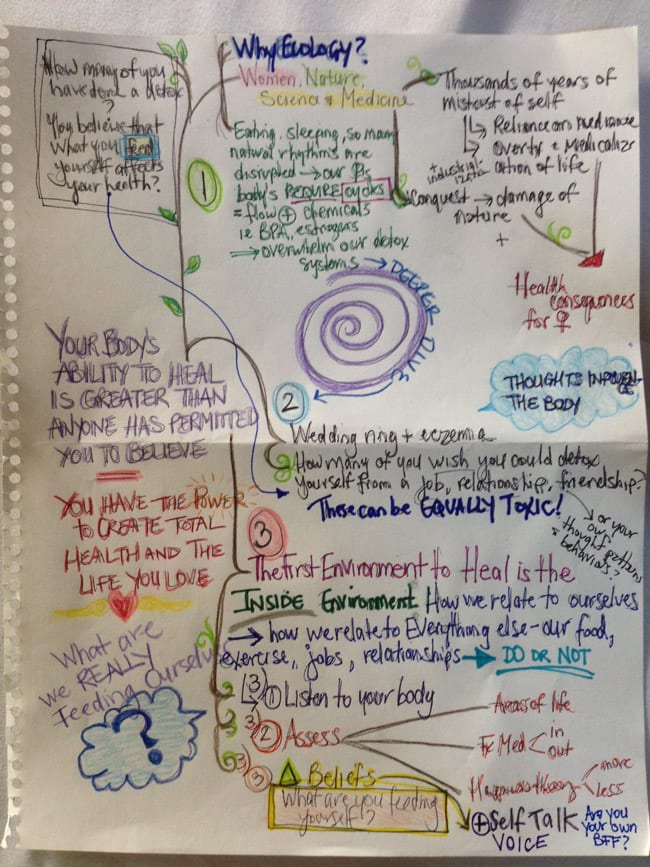 How many of you
have done a detox
?
You believe that
what you feed
yourself affects
your health?
Why Ecology?
Women, Nature,
Science + Medicine
1
Eating, sleeping, so many
natural rhythms are
disrupted → our
body's REQUIRE cycles
= flow + chemicals
i.e BPA, estrogens
⇒ overwhelm our detox
systems → DEEPER
DIVE
Thousands of years of
mistrust of self
↳ Reliance on medicine
↳ overtx + Medicaliz
ation of life
+ industrial-
ization
Conquest → damage of
nature
+
Health
consequences
for ♀
THOUGHTS INFLUENCE
THE BODY
YOUR BODY'S
ABILITY TO HEAL
IS GREATER THAN
ANYONE HAS PERMITTED
YOU TO BELIEVE
2
Wedding ring + eczema
How many of you wish you could detox
yourself from a job, relationship, friendship?
These can be EQUALLY TOXIC!
→ or your
own
thought patterns
+ behaviors?
YOU HAVE THE POWER
to CREATE TOTAL
HEALTH AND THE
LIFE YOU LOVE
3
The First Environment to Heal is the
INSIDE Environment How we relate to ourselves
→ how we relate to Everything else - our food,
exercise, jobs, relationships → DO OR NOT
What are
we REALLY
Feeding Ourselves
?
3 1 Listen to your body
3 2 Assess
Areas of life
Fx Med < in
out
Happiness theory < more
less
3 3 Δ Beliefs
What are you feeding
yourself?
+ Self Talk
VOICE
Are you
your own
BFF?